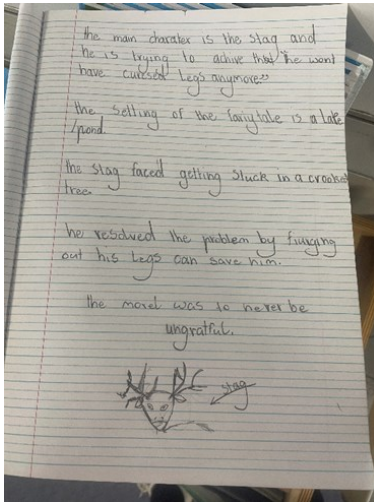 the main charater is the stag and
he is trying to achive that he wont
have cursed Legs anymore"
the setting of the fairytale is a lake
/pond.
the stag faced getting stuck in a crooked
tree.
he resolved the problem by fiunging
out his Legs can save him.
the morel was to never be
ungratful.
stag